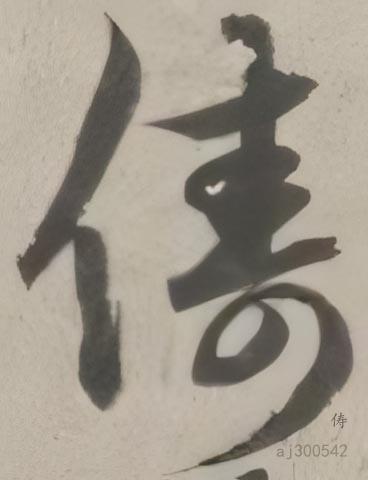 俦
俦
aj300542